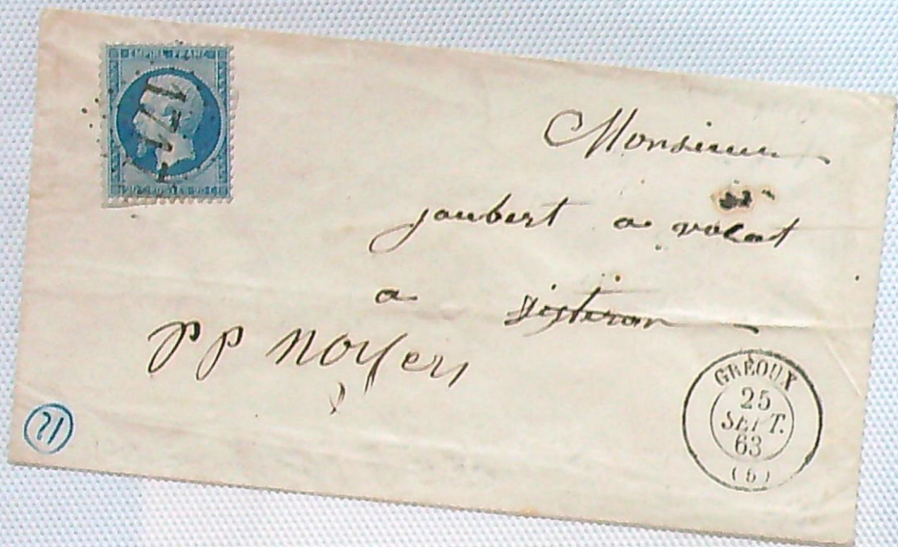 EMPIRE FRANC
Monsieur
joubert a volat
a sisteron
PP Noyers
GRÉOUX
25
SEPT.
63
(5)
21